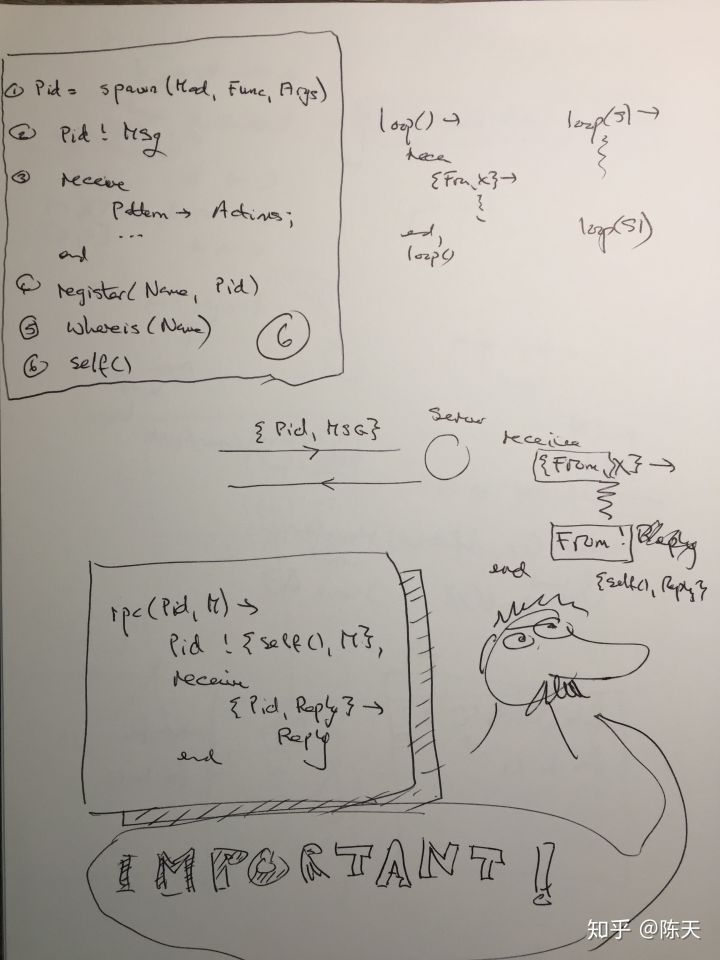 ① Pid = spawn(Mod, Func, Args)
② Pid ! Msg
③ receive
Pattern → Actions;
...
end
④ register(Name, Pid)
⑤ whereis(Name)
⑥ self()
6
loop() →
rece
{Fro, X} →
end,
loop()
loop(S) →
loop(S1)
{Pid, MSG}
Server
receive
{From, X} →
From !
{self(), Reply}
end
rpc(Pid, M) →
Pid ! {self(), M},
receive
{Pid, Reply} →
Reply
end
IMPORTANT!
知乎 @陈天